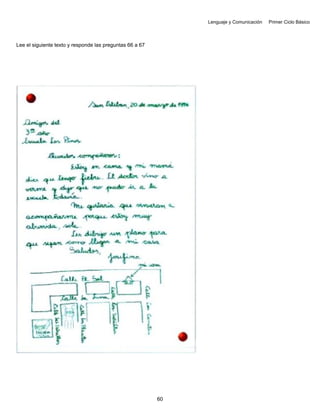 Lenguaje y Comunicación Primer Ciclo Básico
Lee el siguiente texto y responde las preguntas 66 a 67
San Esteban, 20 de marzo de
Amigos del
3er año
Escuela Los Pinos
Queridos compañeros:
Estoy en cama y mi mamá
dice que tengo fiebre. El doctor vino a
verme y dijo que no puedo ir a la
escuela todavía.
Me gustaría que vinieran a
acompañarme porque estoy muy
aburrida, sola.
Les dibujo un plano para
que sepan cómo llegar a mi casa
Saludos,
Josefina
mi casa
Calle El Sol
Calle La Luna
60